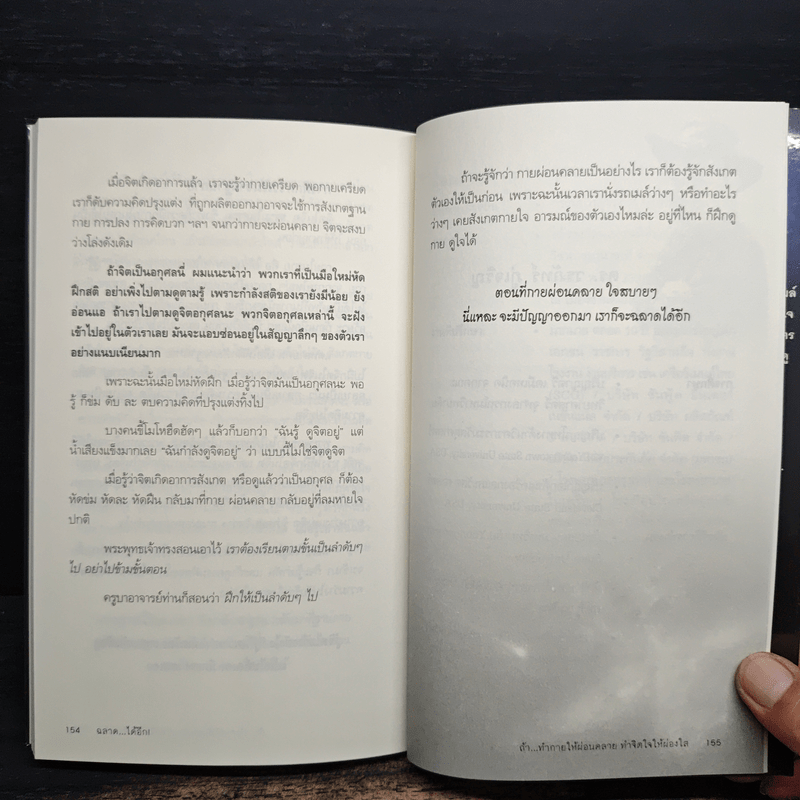 เมื่อจิตเกิดอาการแล้ว เราจะรู้ว่ากายเครียด พอกายเครียด
เราก็ดับความคิดปรุงแต่ง ที่ถูกผลิตออกมาอาจจะใช้การสังเกตฐาน
กาย การปลง การคิดบวก ฯลฯ จนกว่ากายจะผ่อนคลาย จิตจะสงบ
ว่างโล่งดังเดิม
ถ้าจิตเป็นอกุศลนี่ ผมแนะนำว่า พวกเราที่เป็นมือใหม่หัด
ฝึกสติ อย่าเพิ่งไปตามดูตามรู้ เพราะกำลังสติของเรายังมีน้อย ยัง
อ่อนแอ ถ้าเราไปตามดูจิตอกุศลนะ พวกจิตอกุศลเหล่านี้ จะฝัง
เข้าไปอยู่ในตัวเราเลย มันจะแอบซ่อนอยู่ในสัญญาลึกๆ ของตัวเรา
อย่างแนบเนียนมาก
เพราะฉะนั้นมือใหม่หัดฝึก เมื่อรู้ว่าจิตมันเป็นอกุศลนะ พอ
รู้ ก็ข่ม ดับ ละ ตบความคิดที่ปรุงแต่งทิ้งไป
บางคนขี้โมโหฮึดฮัดๆ แล้วก็บอกว่า “ฉันรู้ ดูจิตอยู่” แต่
น้ำเสียงแข็งมากเลย “ฉันกำลังดูจิตอยู่” ว่า แบบนี้ไม่ใช่จิตดูจิต
เมื่อรู้ว่าจิตเกิดอาการสังเกต หรือดูแล้วว่าเป็นอกุศล ก็ต้อง
หัดข่ม หัดละ หัดฝืน กลับมาที่กาย ผ่อนคลาย กลับอยู่ที่ลมหายใจ
ปกติ
พระพุทธเจ้าทรงสอนเอาไว้ เราต้องเรียนตามขั้นเป็นลำดับๆ
ไป อย่าไปข้ามขั้นตอน
ครูบาอาจารย์ท่านก็สอนว่า ฝึกให้เป็นลำดับๆ ไป
154 ฉลาด...ได้อีก!
ถ้าจะรู้จักว่า กายผ่อนคลายเป็นอย่างไร เราก็ต้องรู้จักสังเกต
ตัวเองให้เป็นก่อน เพราะฉะนั้นเวลาเรานั่งรถเมล์ว่างๆ หรือทำอะไร
ว่างๆ เคยสังเกตกายใจ อารมณ์ของตัวเองไหมล่ะ อยู่ที่ไหน ก็ฝึกดู
กาย ดูใจได้
ตอนที่กายผ่อนคลาย ใจสบายๆ
นี่แหละ จะมีปัญญาออกมา เราก็จะฉลาดได้อีก
ถ้า...ทำกายให้ผ่อนคลาย ทำจิตใจให้ผ่องใส 155